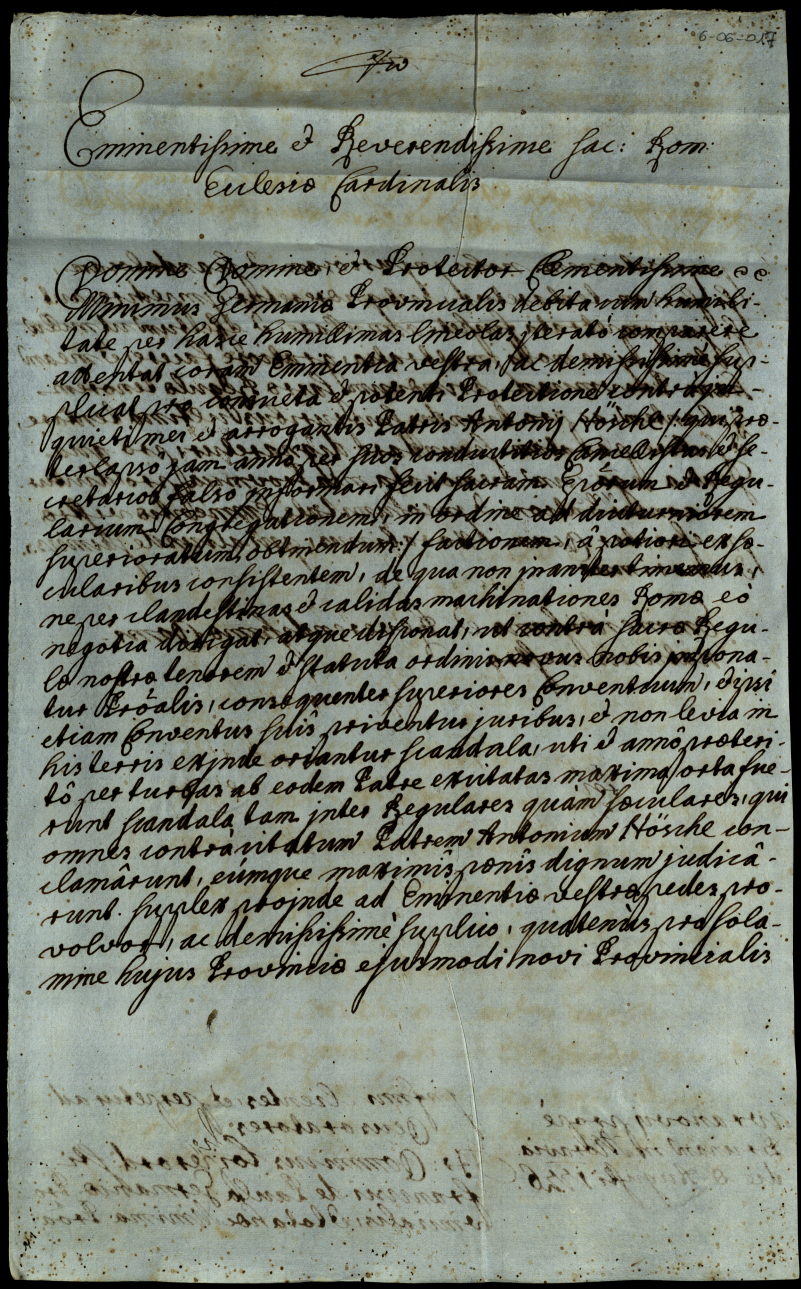 6-06-017
Eminentissime et Reverendissime Sac: Rom:
Eclesiæ Cardinalis
Domine Domine, et Protector Clementissime
Minimus Germaniæ Provincialis debita cum humili-
tate per hasce humillimas lineolas iteratò comparere
attentat coram Eminentia vestra, ac demississimè sup-
plicat pro consueta et potenti Protectione contra in-
quieti mei et arrogantis Patris Antonij Hösche /: qui præ-
terlapsò jam annò per suos conductitios Cancellistas et se-
cretarios falsò informari fecit sacram Epörum et Regu-
larium Congregationem, in ordine ad diuturniorem
superioratum obtinendum :/ factionem, â potiori ex sæ-
cularibus consistentem, de qua non inaniter timemus,
ne per clandestinas et calidas machinationes Romæ eò
negotia dirigat, atque disponat, ut contrà sacræ Regu-
læ nostræ tenorem et statuta ordinis novus nobis impona-
tur Pröalis, consequenter superiores Conventuum, et ipsi
etiam Conventus suîs priventur juribus, et non levia in
his terris exinde oriantur scandala, uti et annô præteri-
tô per turbas ab eodem Patre excitatas maxima orta fue-
runt scandala tam inter Regulares quàm sæculares, qui
omnes contrà citatum Patrem Antonium Hösche con-
clamârunt, eúmque maximîs pœnîs dignum judicâ-
runt. supplex proinde ad Eminentiæ vestræ pedes pro-
volvor, ac demississimè suplico, quatenùs pro sola-
mine hujus Provinciæ ejusmodi novi Provincialis